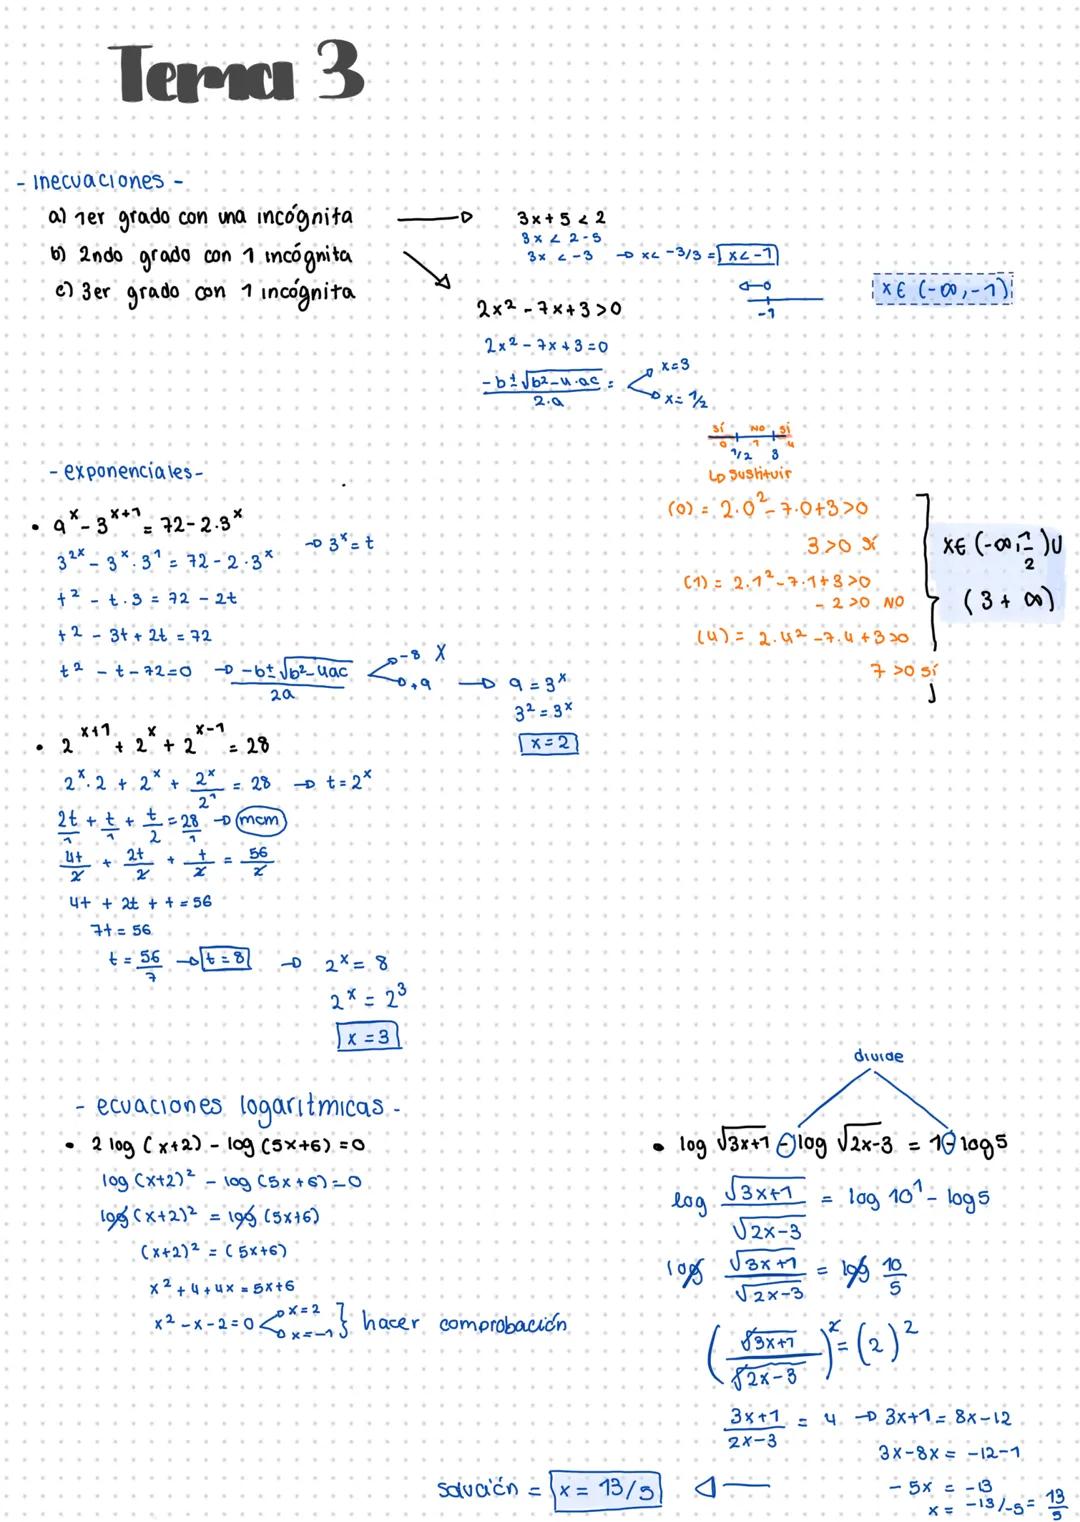 Tema 3
- inecuaciones -
a) 1er grado con una incógnita
b) 2ndo grado con 1 incógnita
c) 3er grado con 1 incógnita
3x + 5 < 2
3x < 2 - 5
3x < -3 → x < -3/3 = x < -1
-1
x ∈ (-∞, -1)
2x² - 7x + 3 > 0
2x² - 7x + 3 = 0
-b ± √b² - 4·ac / 2·a = x = 3
x = 1/2
sí NO sí
0 1 4
1/2 3
↳ sustituir
(0) = 2·0² - 7·0 + 3 > 0
3 > 0 sí
(1) = 2·1² - 7·1 + 3 > 0
- 2 > 0 NO
(4) = 2·4² - 7·4 + 3 > 0
7 > 0 sí
x ∈ (-∞, 1/2) U
(3 + ∞)
- exponenciales -
• 9^x - 3^(x+1) = 72 - 2·3^x
3^(2x) - 3^x · 3^1 = 72 - 2·3^x → 3^x = t
t² - t·3 = 72 - 2t
t² - 3t + 2t = 72
t² - t - 72 = 0 → -b ± √b² - 4ac / 2a
-8 X
+9 → 9 = 3^x
3² = 3^x
x = 2
• 2^(x+1) + 2^x + 2^(x-1) = 28
2^x · 2 + 2^x + 2^x/2^1 = 28 → t = 2^x
2t/1 + t/1 + t/2 = 28/1 → mcm
4t/2 + 2t/2 + t/2 = 56/2
4t + 2t + t = 56
7t = 56
t = 56/7 → t = 8 → 2^x = 8
2^x = 2³
x = 3
- ecuaciones logarítmicas -
• 2 log (x+2) - log (5x+6) = 0
log (x+2)² - log (5x+6) = 0
log (x+2)² = log (5x+6)
(x+2)² = (5x+6)
x² + 4 + 4x = 5x+6
x² - x - 2 = 0 x = 2
x = -1 } hacer comprobación
divide
• log √3x+1 - log √2x-3 = 1 - log 5
log √3x+1 / √2x-3 = log 10^1 - log 5
log √3x+1 / √2x-3 = log 10/5
(√3x+1 / √2x-3)² = (2)²
3x+1 / 2x-3 = 4 → 3x+1 = 8x-12
3x-8x = -12-1
- 5x = -13
x = -13/-5 = 13/5
solución = x = 13/5